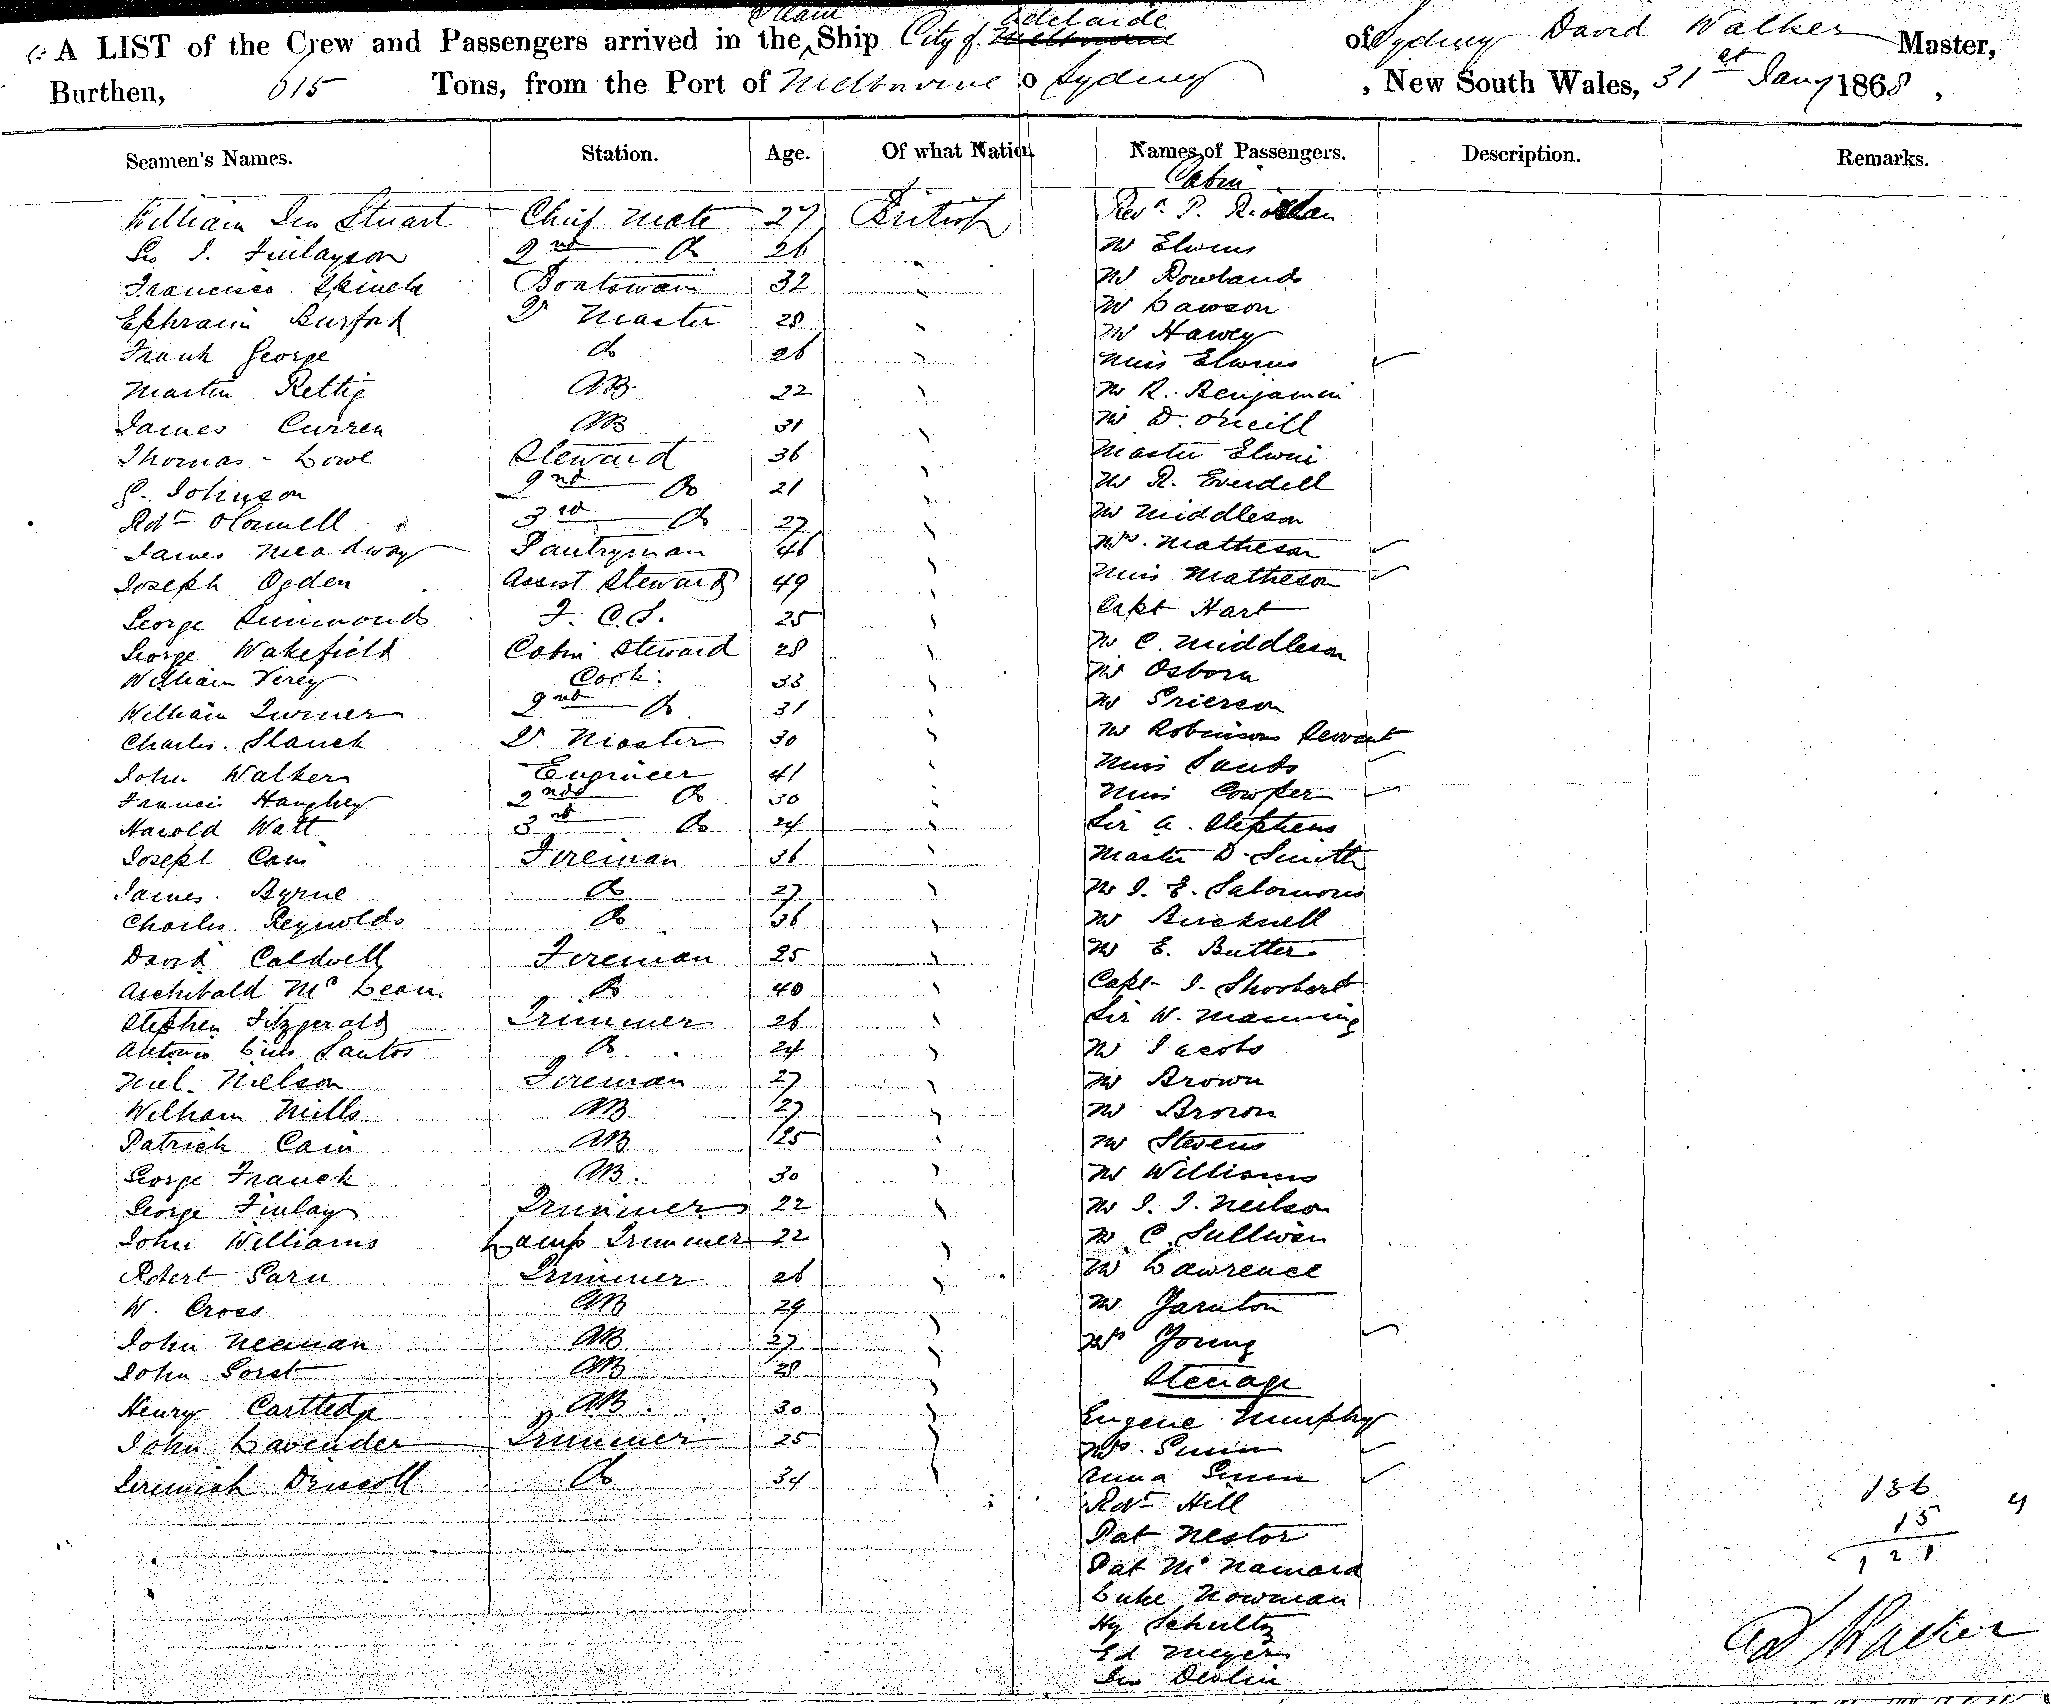 A LIST of the Crew and Passengers arrived in the Steam Ship City of Adelaide of Sydney David Walker Master,
Burthen, 615 Tons, from the Port of Melbourne to Sydney, New South Wales, 31st Jany 1868,
Seamen's Names. Station. Age. Of what Nation Names of Passengers. Description. Remarks.
Cabin
William Stuart Chief Mate 27 British Revd P.
Finlayson 2nd Do 26 Mr Elwin
Francisco Boatswain 32 Mr Rowlands
Ephraim Burford Qr Master 28 Mr Lawson
Frank George do 26 Mr
Martin Rettig AB 22 Miss Elwin
James Curren AB 31 Mr R. Benjamin
Thomas Lowe Steward 36 Mr D. O'Neill
Johnson 2nd Do 21 Master Elwin
Robt O'Connell 3rd Do 27 Mr R. Everdell
James Meadway Pantryman 46 Mr Middleson
Joseph Ogden Assist Steward 49 Mrs. Matheson
George Simmonds F. C. S. 25 Miss Matheson
George Wakefield Cabin Steward 28 Capt Hart
William Verey Cook 33 Mr C. Middleson
William Turner 2nd Do 31 Mr Osborn
Charles Qr Master 30 Mr Grierson
John Walker Engineer 41 Mr Robinson Servant
Francis Haughey 2nd Do 30 Miss Sands
Harold Watt 3rd Do 24 Miss Cowper
Joseph Cain Fireman 36 Sir A. Stephens
James Byrne Do 27 Master D. Smith
Charles Reynolds Do 36 Mr J. E. Salomons
David Caldwell Fireman 25 Mr Bucknell
Archibald McLean Do 40 Mr E. Butter
Stephen Fitzgerald Trimmer 26 Capt J. Shoobert
Antonio Santos Do 24 Sir W. Manning
Niel Nielson Fireman 27 Mr Jacobs
William Mills AB 27 Mr Brown
Patrick Cain AB 25 Mr Brown
George Franck AB 30 Mr Stevens
George Finlay Trimmer 22 Mr Williams
John Williams Lamp Trimmer 22 Mr J. J. Neilson
Robert Trimmer 26 Mr C. Sullivan
W. Cross AB 29 Mr Lawrence
John Neenan AB 27 Mr Yarnton
John AB 28 Mrs Young
Steerage
Henry Cartledge AB 30 Eugene Murphy
John Lavender Trimmer 25 Mrs.
Jeremiah Driscoll Do 34 Anna
Robt Hill
Pat Nestor
Pat McNamara
Luke Nowman
Hy Schultz
Ed Meyer
Jno Devlin
136
15
121
Walker